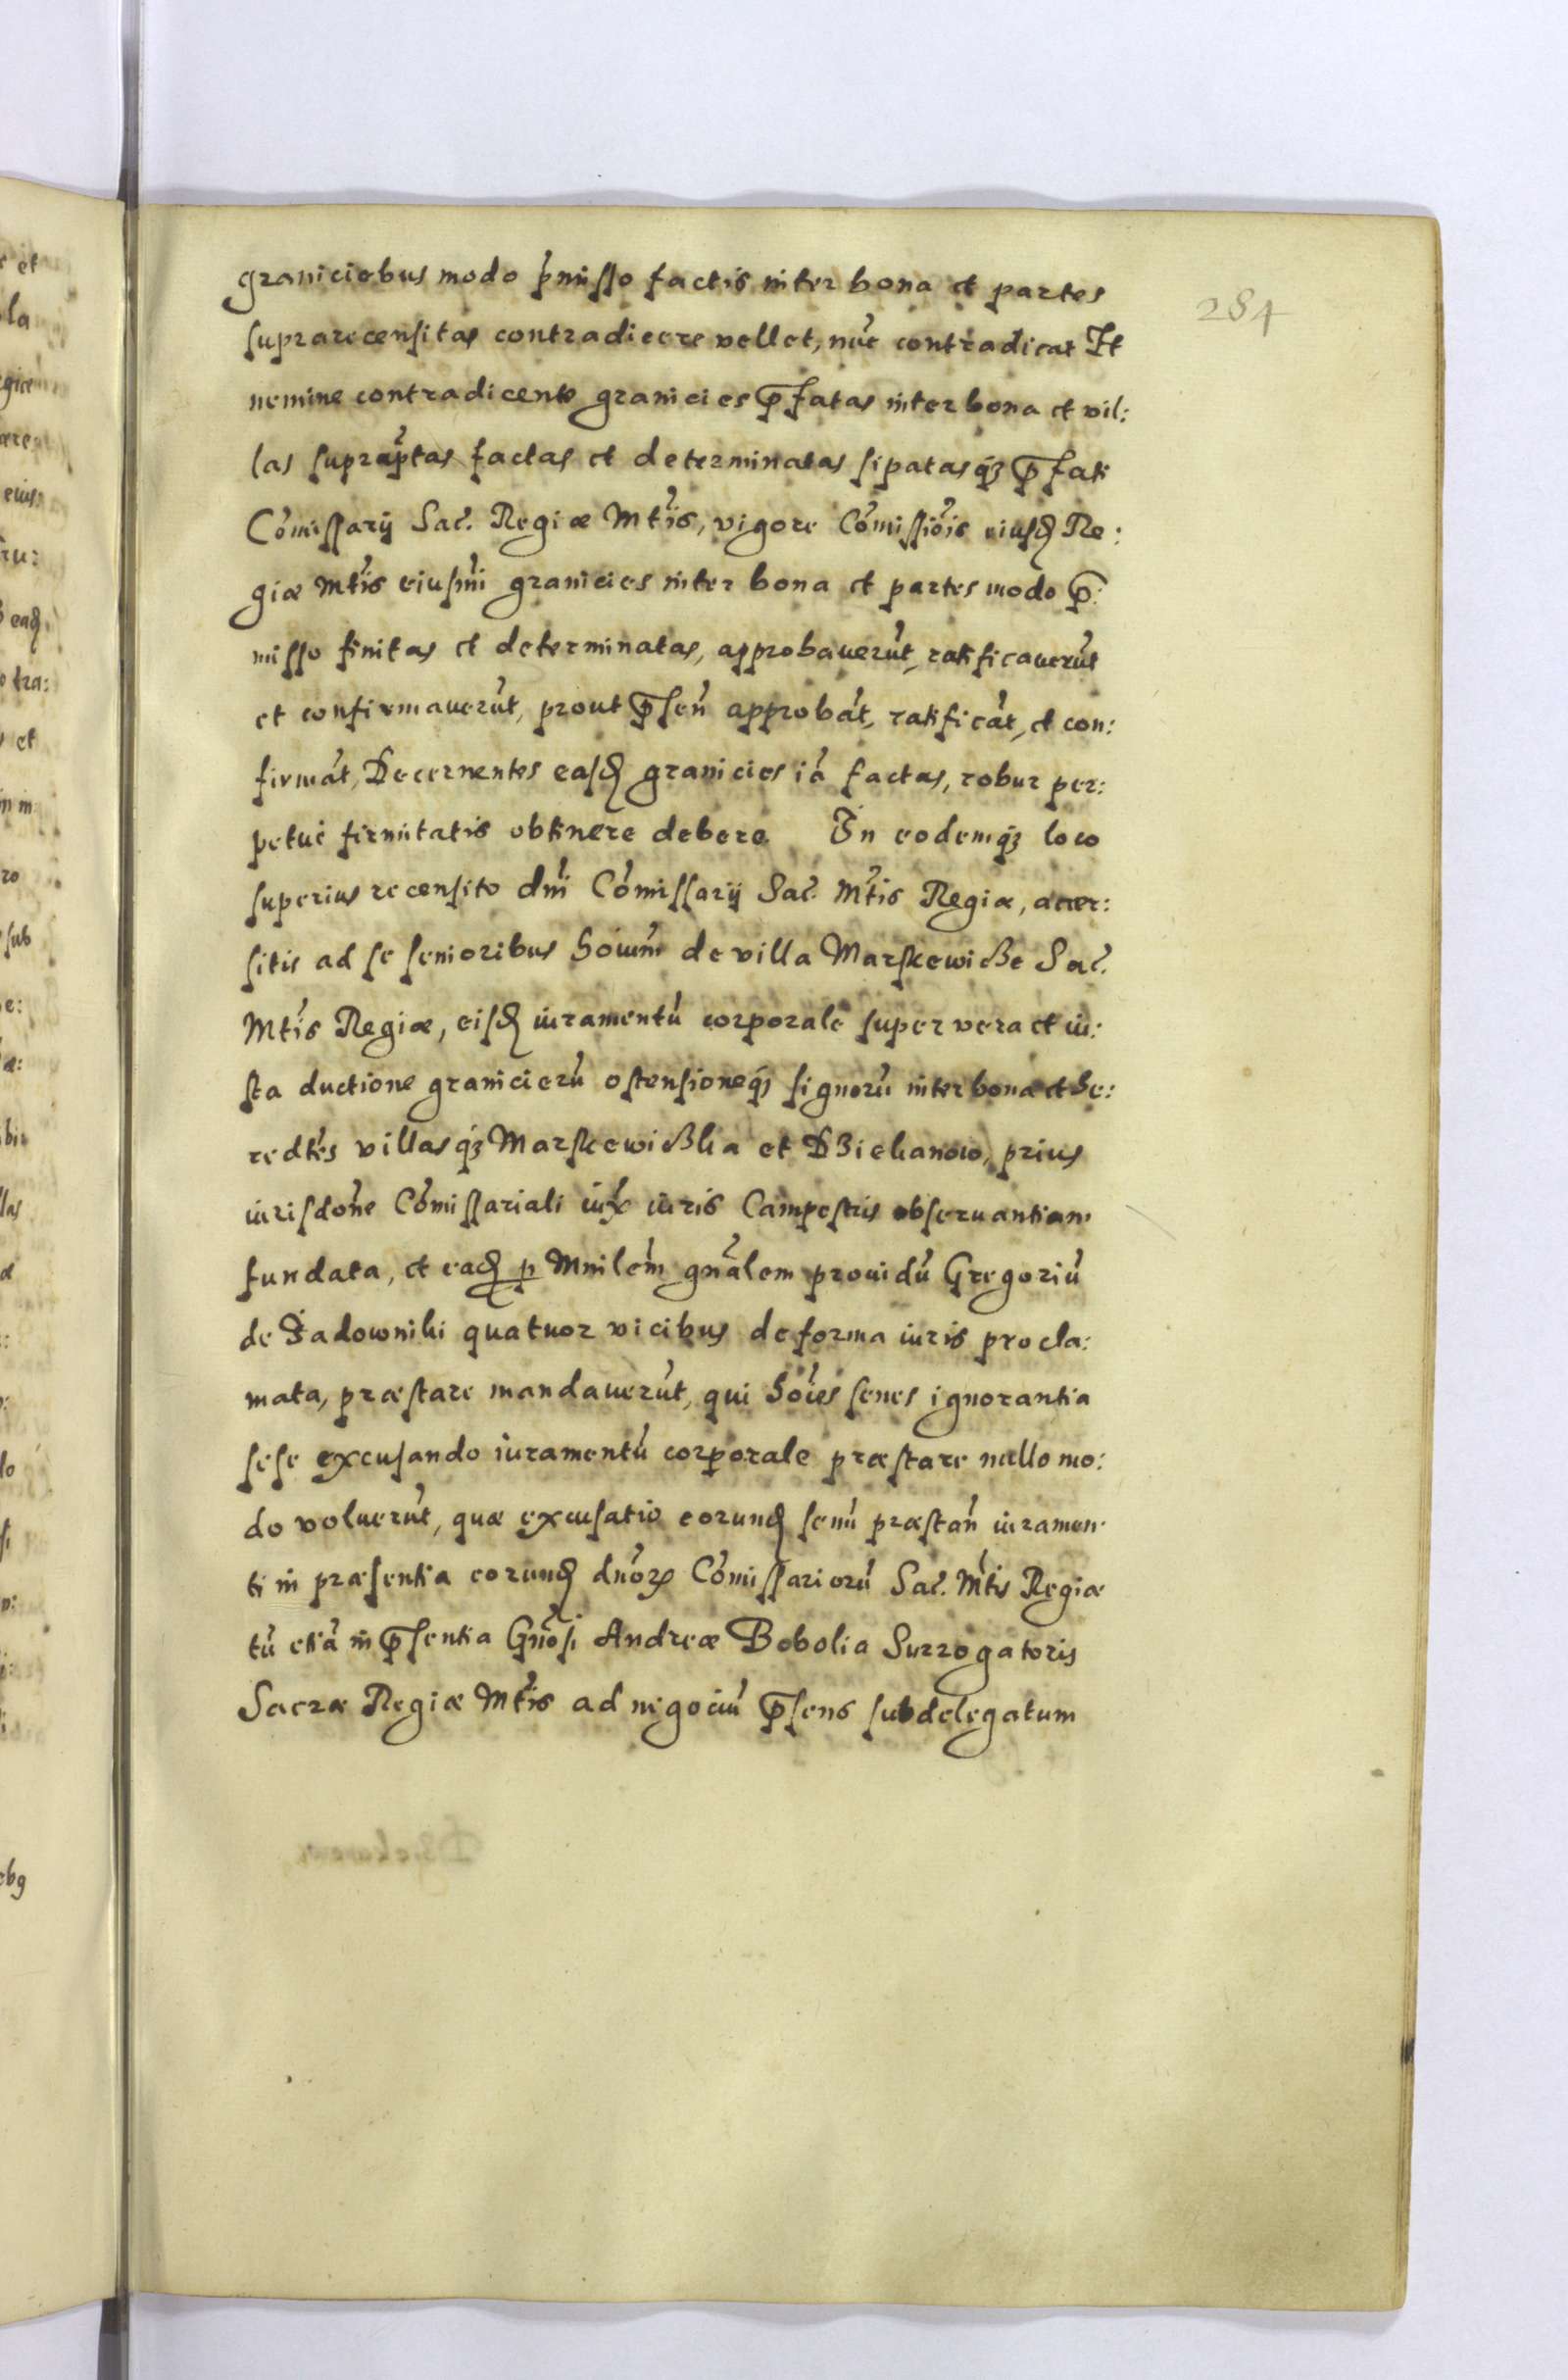 284
graniciebus modo p̃misso factis inter bona et partes
suprarecensitas contradicere vellet, nũc contradicat Et
nemine contradicente granicies p̄fatas inter bona et vil:
las suprap̃tas factas et determinatas sipatasq₃ p̄fati
Com̃issarij Sac̃. Regiæ Mt̃is, vigore Com̃issiõis eiusd Re:
giæ Mt̃is eiusm̃i granicies inter bona et partes modo p̄:
misso finitas et determinatas, approbauerũt, ratificauerũt
et confirmauerũt, prout p̄señ approbãt, ratificãt, et con:
firmãt, Decernentes easd granicies iã factas, robur per:
petuẽ firmitatis obtinere debere. In eodemq₃ loco
superius recensito dñi Com̃issarij Sac̃. Mt̃is Regiæ, accer:
sitis ad se senioribus hoĩum de villa Marskewicze Sac̃.
Mt̃is Regiæ, eisd iuramentũ corporale super vera et iu:
sta ductione granicierũ ostensioneq₃ signorũ inter bona et he:
redt̃es villasq₃ Marskewiczka et Dziekanow, prius
iurisdõne Com̃issariali iux̃ iuris Campestris obseruantiam
fundata, et ead p Mnilẽm gñalem prouidũ Gregoriũ
de Sadowniki quatuor vicibus de forma iuris procla:
mata, præstare mandauerũt, qui hoĩes senes ignorantia
sese excusando iuramentũ corporale præstare nullo mo:
do voluerũt, quæ excusatio eorund senũ præstañ iuramen:
ti in præsentia eorund dñoꝝ Com̃issariorũ Sac̃. Mt̃is Regiæ
tũ etiã in p̄sentia Gñosi Andreæ Bobolia Surrogatoris
Sacræ Regiæ Mt̃is ad negociũ p̄sens subdelegatum